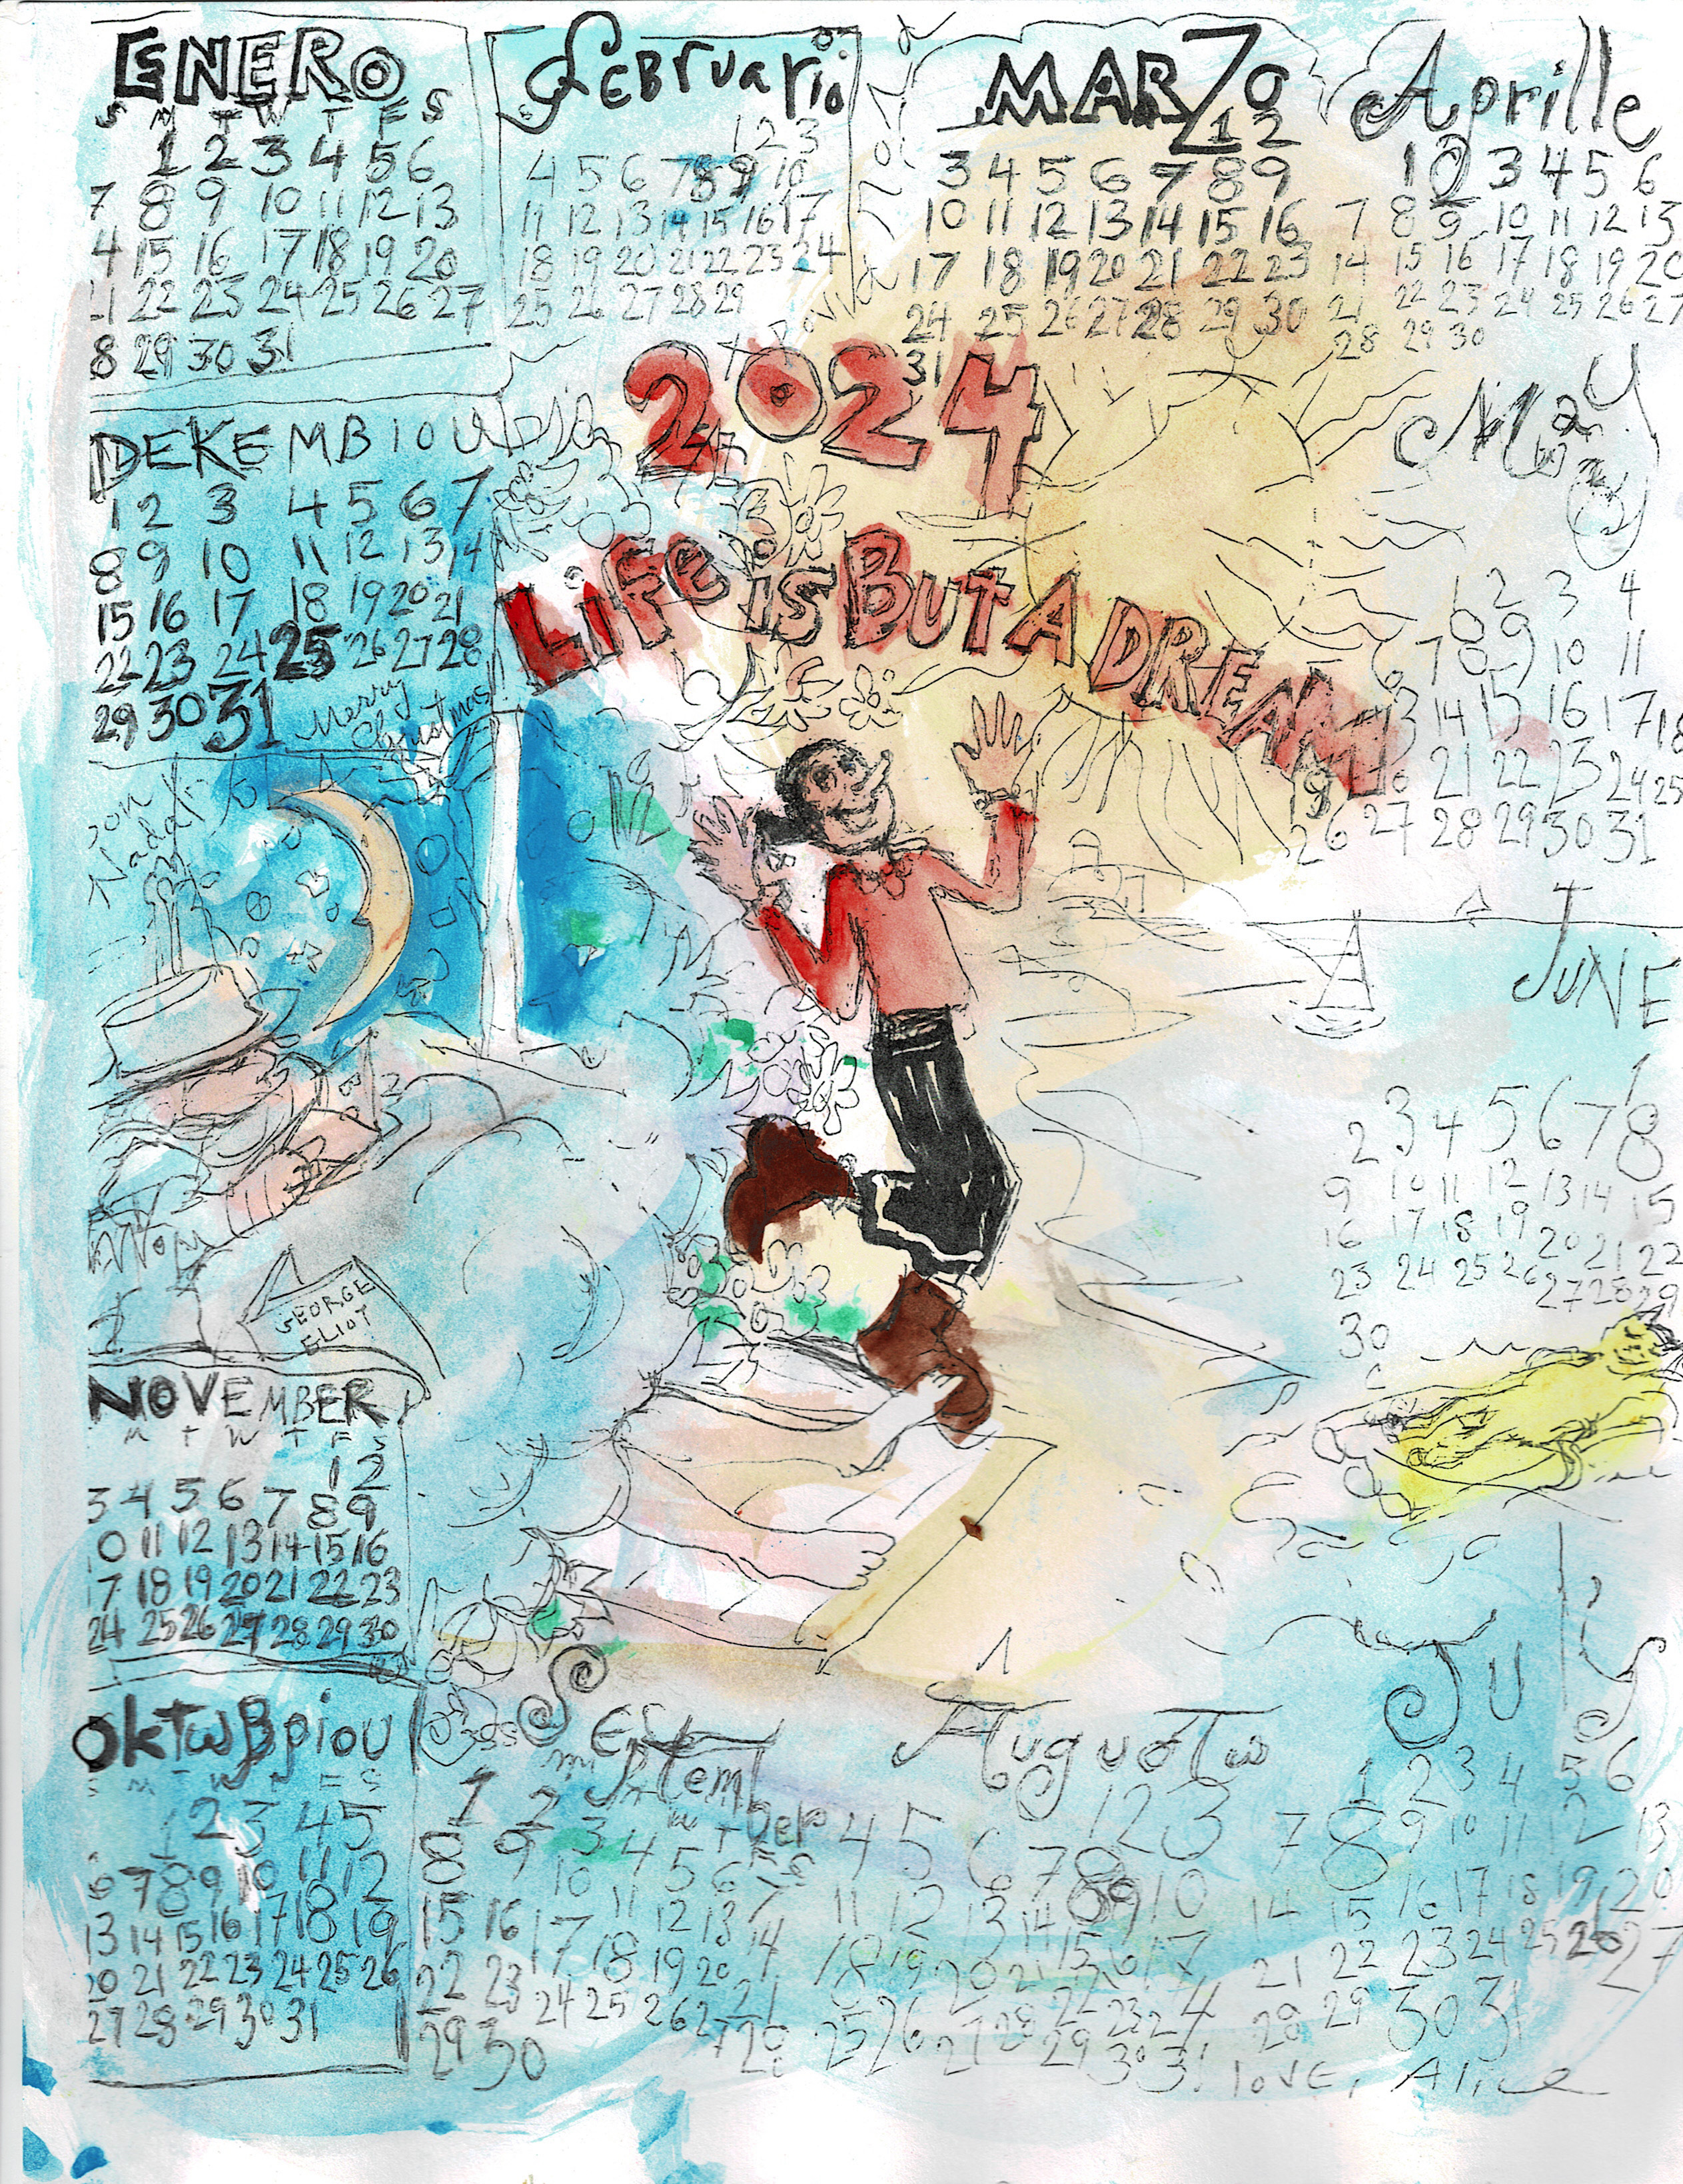 ENERO
S M T W T F S
1 2 3 4 5 6
7 8 9 10 11 12 13
4 15 16 17 18 19 20
21 22 23 24 25 26 27
8 29 30 31
Februario
1 2 3
4 5 6 7 8 9 10
11 12 13 14 15 16 17
18 19 20 21 22 23 24
25 26 27 28 29
MARZO
1 2
3 4 5 6 7 8 9
10 11 12 13 14 15 16
17 18 19 20 21 22 23
24 25 26 27 28 29 30
31
Aprille
1 2 3 4 5 6
7 8 9 10 11 12 13
14 15 16 17 18 19 20
21 22 23 24 25 26 27
28 29 30
2024
LIFE IS BUT A DREAM
May
1 2 3 4
6 7 8 9 10 11
13 14 15 16 17 18
19 20 21 22 23 24 25
26 27 28 29 30 31
DEKEMBIOU
1 2 3 4 5 6 7
8 9 10 11 12 13 14
15 16 17 18 19 20 21
22 23 24 25 26 27 28
29 30 31
Merry
Christmas!
JUNE
1
2 3 4 5 6 7 8
9 10 11 12 13 14 15
16 17 18 19 20 21 22
23 24 25 26 27 28 29
30
GEORGE
ELIOT
NOVEMBER
M T W T F S
1 2
3 4 5 6 7 8 9
10 11 12 13 14 15 16
17 18 19 20 21 22 23
24 25 26 27 28 29 30
OKTωβρίου
S M T W T F S
1 2 3 4 5
6 7 8 9 10 11 12
13 14 15 16 17 18 19
20 21 22 23 24 25 26
27 28 29 30 31
September
1 2 3 4 5 6 7
8 9 10 11 12 13 14
15 16 17 18 19 20 21
22 23 24 25 26 27 28
29 30
Auguστω
1 2 3
4 5 6 7 8 9 10
11 12 13 14 15 16 17
18 19 20 21 22 23 24
25 26 27 28 29 30 31
July
1 2 3 4 5 6
7 8 9 10 11 12 13
14 15 16 17 18 19 20
21 22 23 24 25 26 27
28 29 30 31
love, Alice